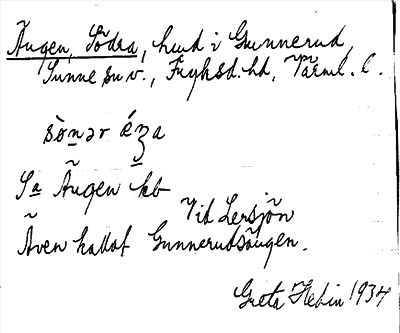 Ängen, Södra, hmd i Gunnerud,
Sunne sn v., Fryksd. hd, Värml. l.
sò̱nər ǽʒa
Sa Ängen kb
Vid Lersjön
Även kallat Gunnerudsängen.
Greta Hedin 1934